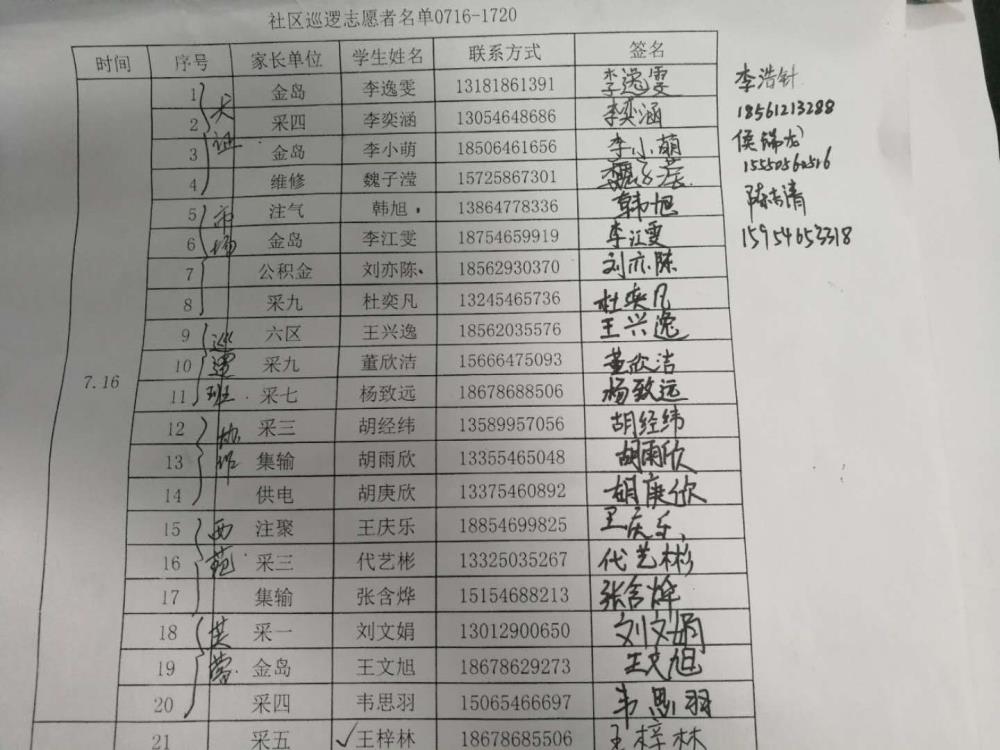 社区巡逻志愿者名单0716-1720
时间 序号 家长单位 学生姓名 联系方式 签名
7.16
1 金岛 李逸雯 13181861391 李逸雯
2 采四 李奕涵 13054648686 李奕涵
3 金岛 李小萌 18506461656 李小萌
4 维修 魏子滢 15725867301 魏子滢
5 注气 韩旭 13864778336 韩旭
6 金岛 李江雯 18754659919 李江雯
7 公积金 刘亦陈 18562930370 刘亦陈
8 采九 杜奕凡 13245465736 杜奕凡
9 六区 王兴逸 18562035576 王兴逸
10 采九 董欣洁 15666475093 董欣洁
11 采七 杨致远 18678688506 杨致远
12 采三 胡经纬 13589957056 胡经纬
13 集输 胡雨欣 13355465048 胡雨欣
14 供电 胡庚欣 13375460892 胡庚欣
15 注聚 王庆乐 18854699825 王庆乐
16 采三 代艺彬 13325035267 代艺彬
17 集输 张含烨 15154688213 张含烨
18 采一 刘文娟 13012900650 刘文娟
19 金岛 王文旭 18678629273 王文旭
20 采四 韦思羽 15065466697 韦思羽
21 采五 ✓王梓林 18678685506 王梓林
办证
市场
巡逻班
协作
西苑
芙蓉
李浩针
18561213288
侯锦龙
陈志清
15954653318